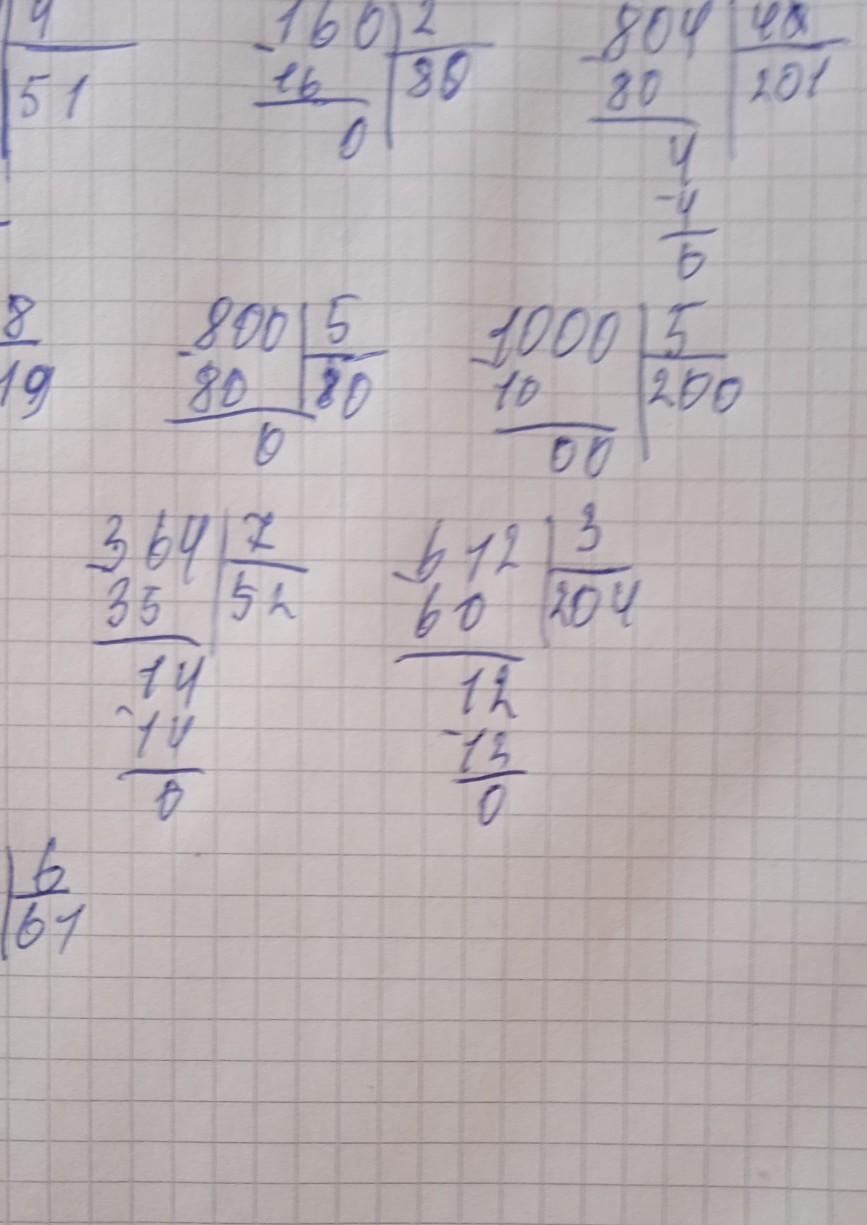 4
51
-160 2
16 80
0
-804 4
80 201
4
-4
0
8
19
-800 5
80 80
0
-1000 5
10 200
00
-364 7
35 52
14
-14
0
-612 3
60 204
12
-12
0
6
61